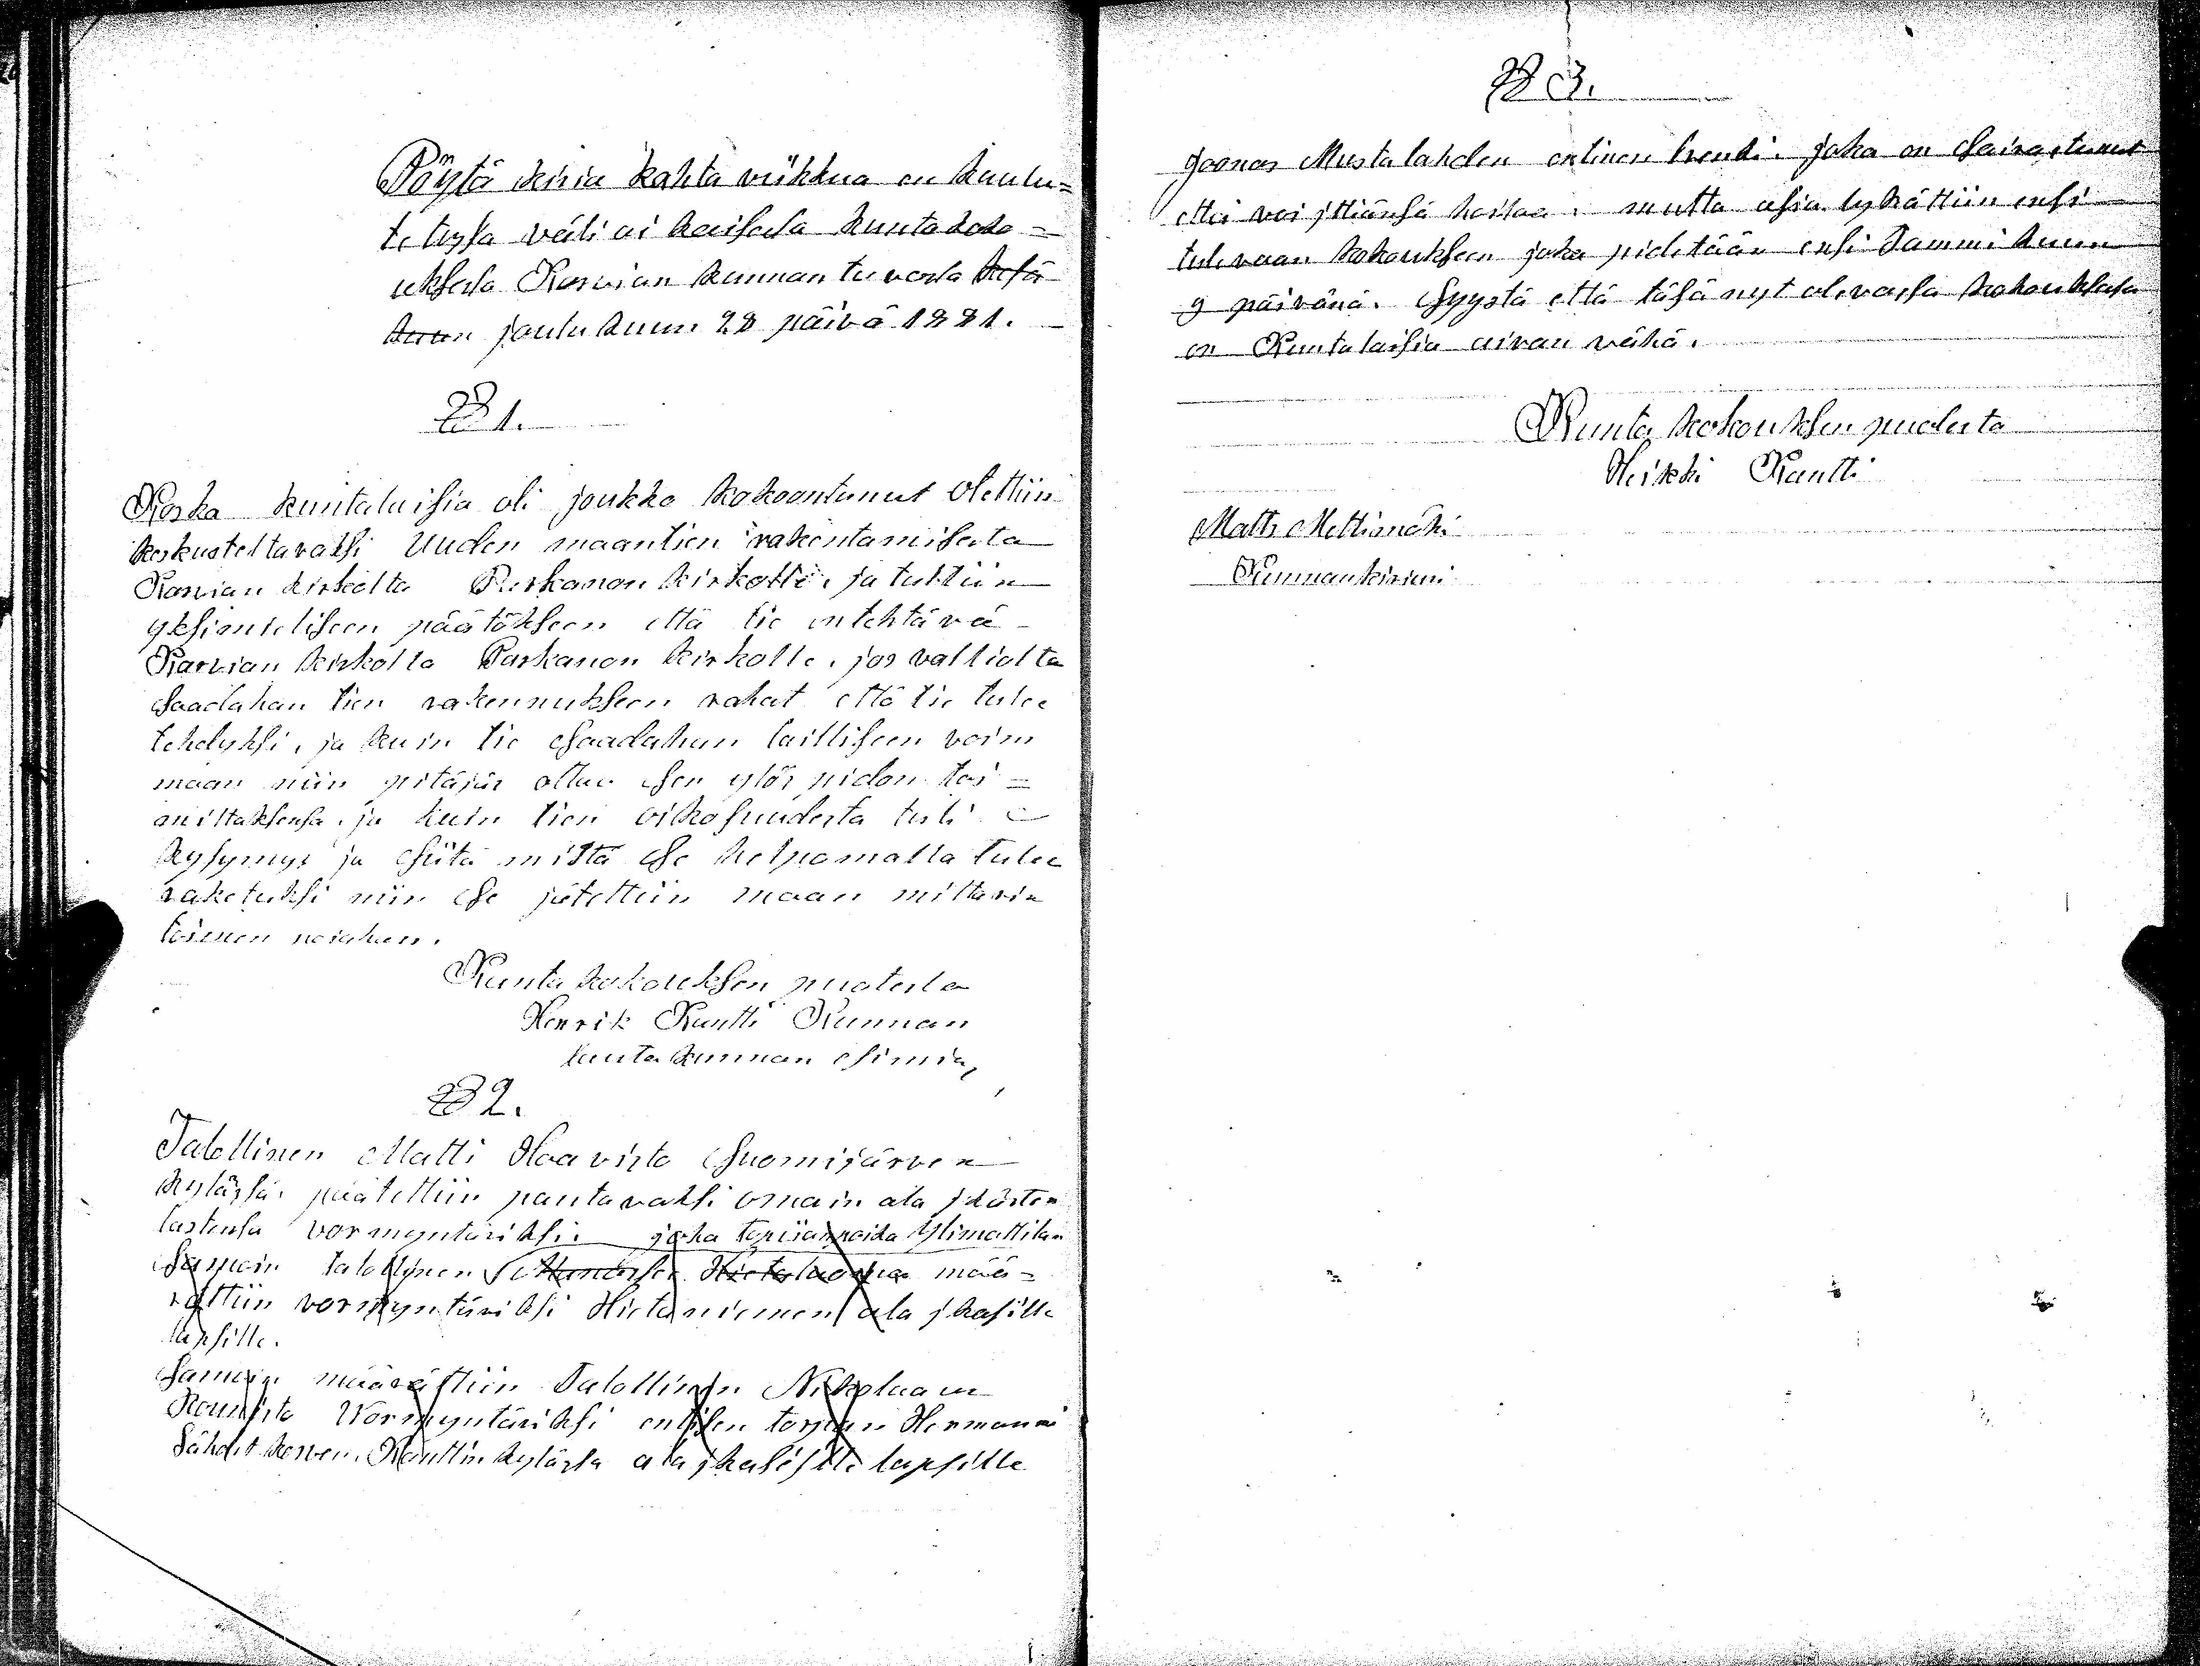 Pöytä kirja kahta viikkua en kuulu=
tetussa väli ai kaisesta kuntakoko=
uksesta Karvian kunnan tuvasta kesä
kuun joulu kuun 28 päivä 1881.
§ 1.
Koska kuntalaisia oli joukko kokoontunut Otettiin
keskusteltavaksi Uuden maantien rakentamisesta
Karvian kirkolta Parkanon kirkolle, ja tultiin
yksimieliseen päätökseen että tie on tehtävä
Karvian kirkolta Parkanon kirkolle, jos valtiolta
Saadahan tien rakennukseen rahat että tie tulee
tehdyksi, ja kuin tie Saadahan lailliseen voim
maan niin pitäjäs ottaa sen ylös pidon toi=
mittaksensa, ja kuin tien oikosuudesta tuli
kysymys ja Siitä mistä Se helpomalla tulee
raketuksi niin Se jätettiin maan mittarin
toimen nojahan.
Kunta kokouksen puolesta
Henrik Kantti Kunnan
lauta kunnan Esimies,
§ 2.
Talollinen Matti Haavisto Suomijärven
kylässä, päätettiin pantavaksi omain ala jkästen
lastensa vormyntäriksi. joka Ylimattilan
Samoin talollinen määrättiin vormyntäriksi Hietaniemen ala jkasille
lapsille.
Samoin määrättiin Talollinen Nikolaus
Rounisto Wormyntäriksi entisen torpan Hermanni
Sähdetkorven, Kanttin kylässä ala jkasisille lapsille
§ 3.
Joonas Mustalahden entinen trenki. joka on Sairastunut
ettei voi jttiänsä hoitaa. mutta asia lykättiin ensi
tulevaan kokoukseen joka pidetään ensi Tammi kuun
9 päivänä. Syystä että täsä nyt olevassa kokouksesa
on Kuntalaisia aivan vähä.
Kunta kokouksen puolesta
Heikki Kantti
Matts Mettiemäki
Kunnankirjuri